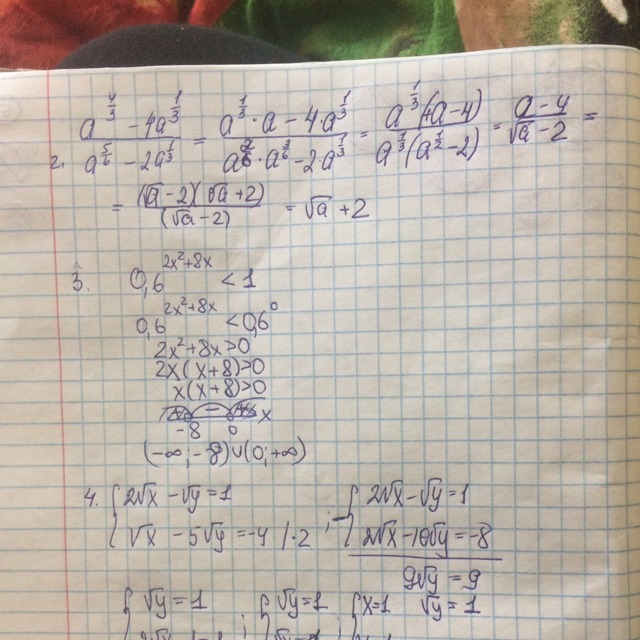 2. (a^(4/3) - 4a^(1/3))/(a^(5/6) - 2a^(1/3)) = (a^(1/3)·a - 4·a^(1/3))/(a^(2/6)·a^(3/6) - 2·a^(1/3)) = (a^(1/3)(a-4))/(a^(1/3)(a^(1/2)-2)) = (a-4)/(√a-2) =
= ((√a-2)(√a+2))/((√a-2)) = √a+2
3. 0,6^(2x²+8x) < 1
0,6^(2x²+8x) < 0,6^0
2x²+8x>0
2x(x+8)>0
x(x+8)>0
- x
-8 0
(-∞;-8)∪(0;+∞)
4. { 2√x - √y = 1 ; - { 2√x - √y = 1
√x - 5√y = -4 /·2 2√x - 10√y = -8
9√y = 9
{ √y = 1 ; { √y = 1 ; { x=1 √y = 1